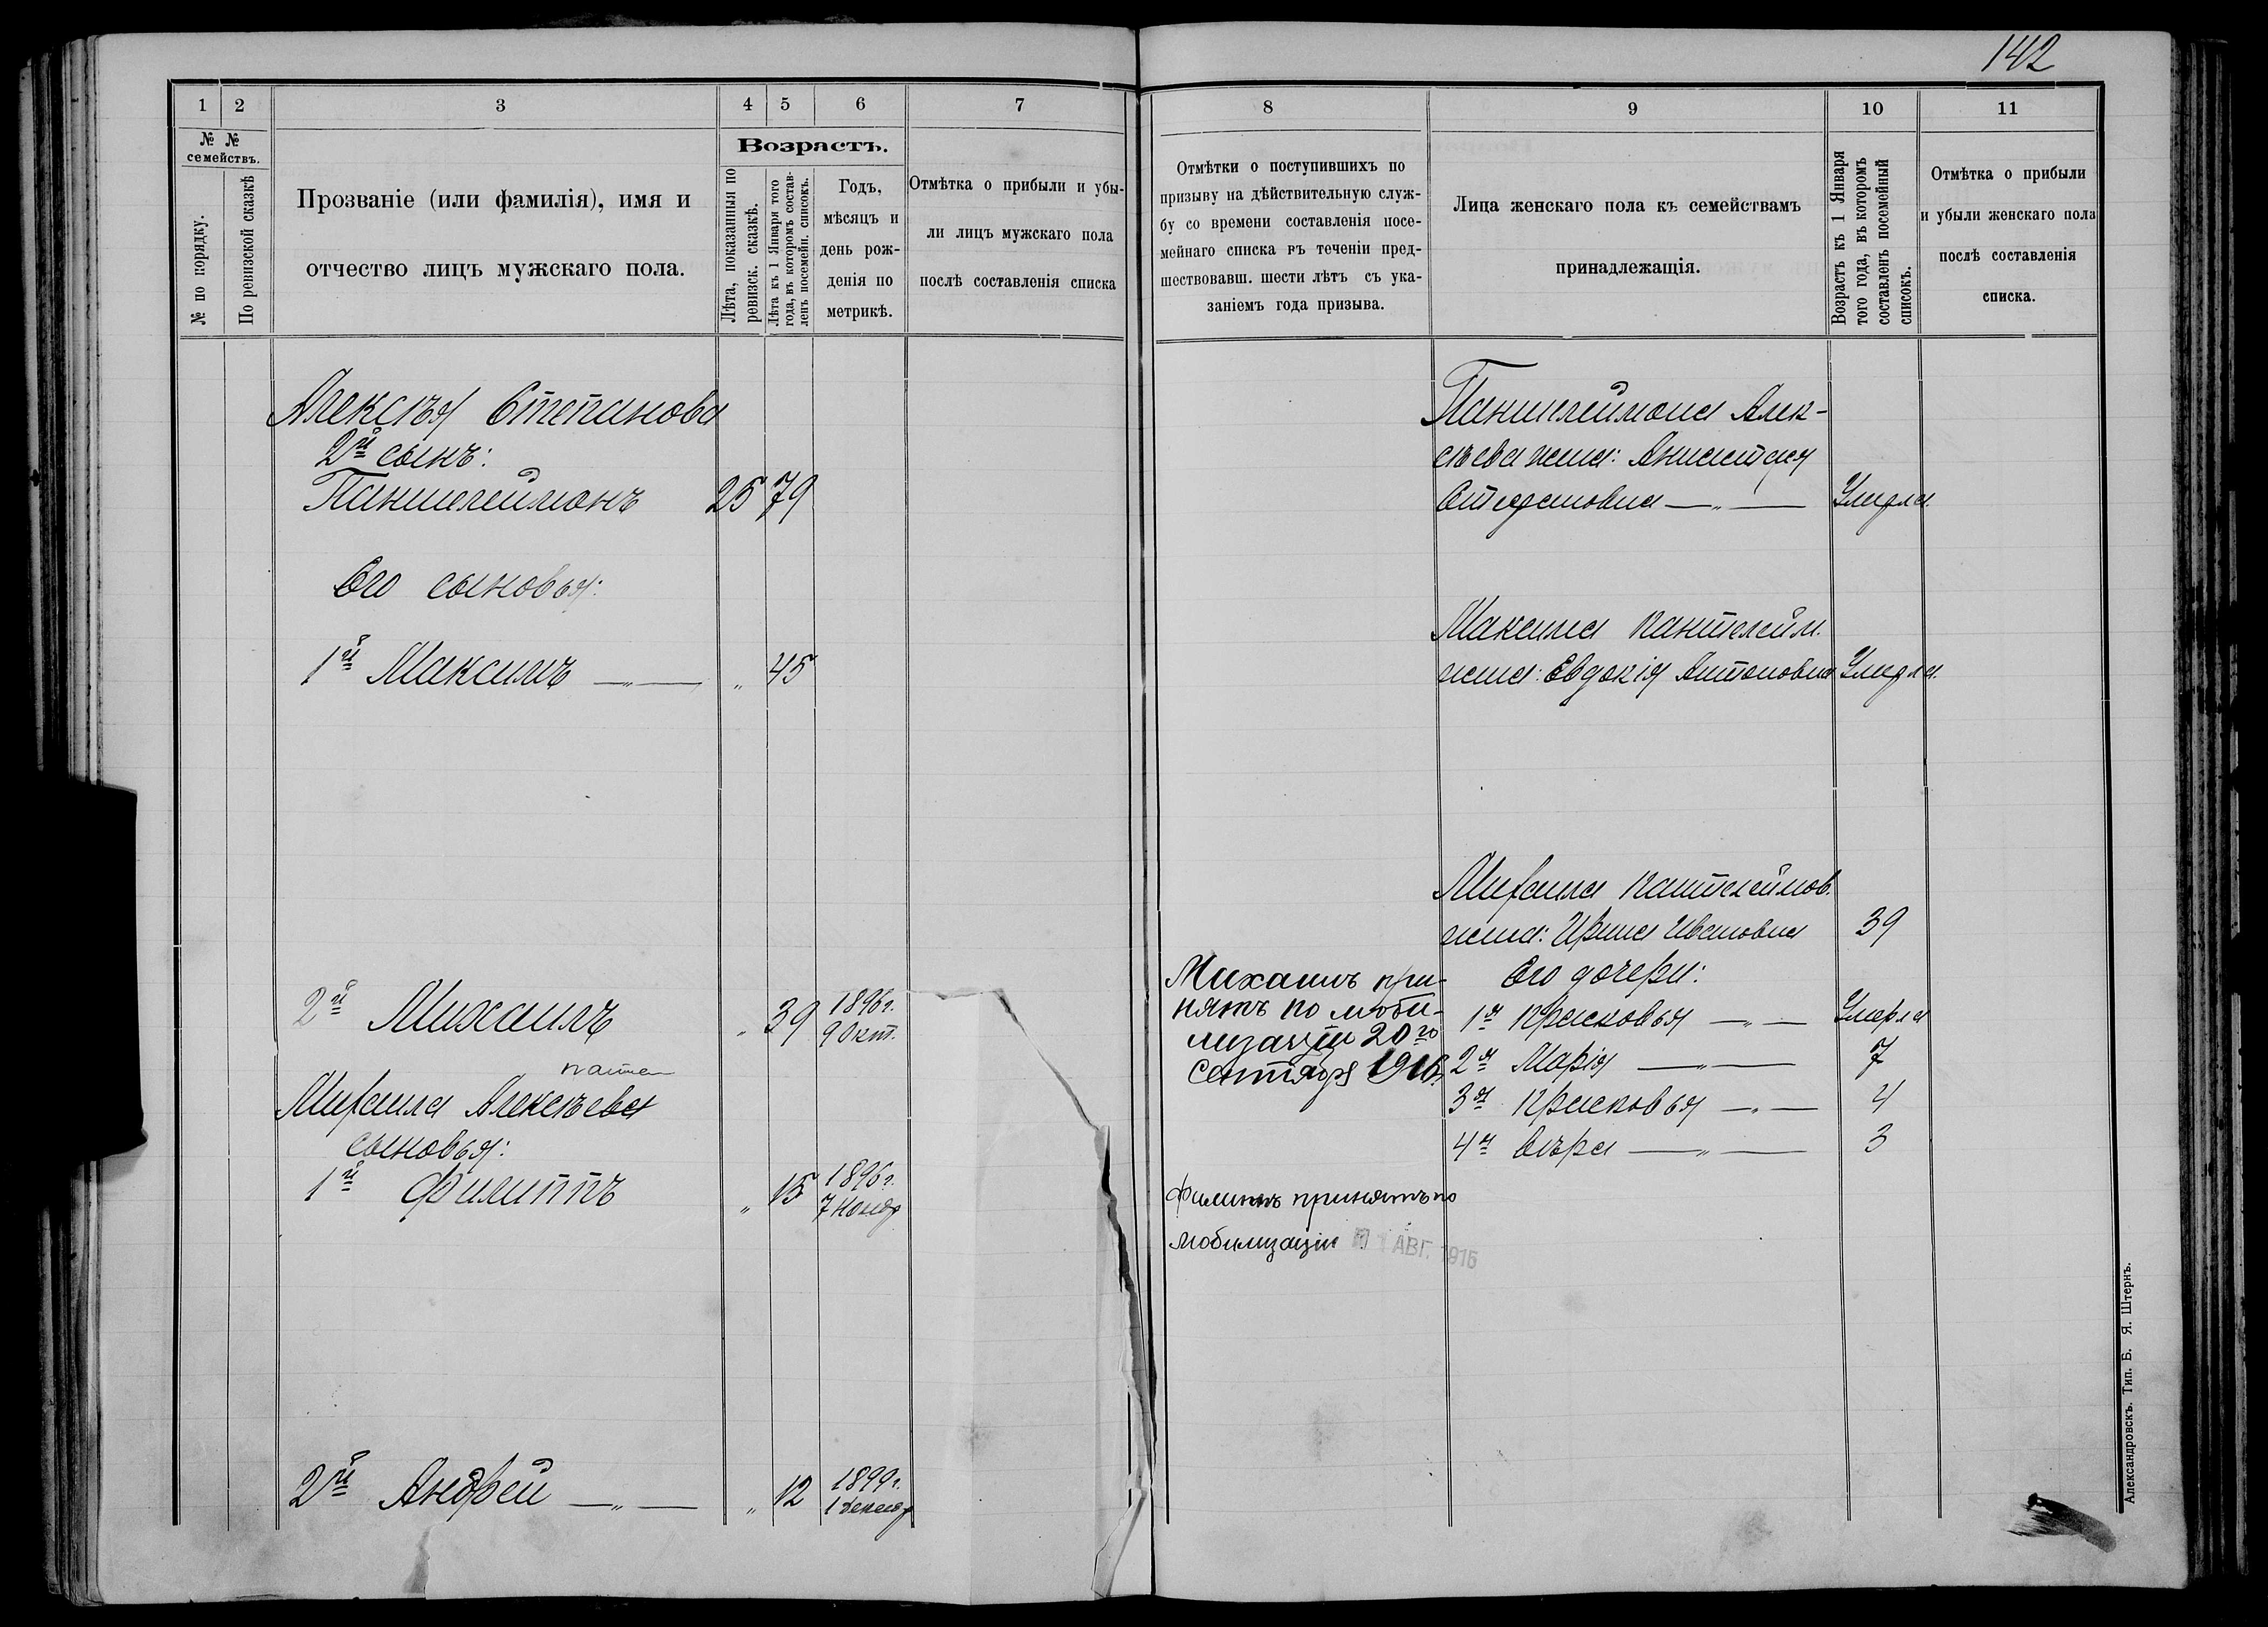 142
1 2 3 4 5 6 7
№ № семействъ.
№ по порядку.
По ревизской сказкѣ
Прозваніе (или фамилія), имя и
отчество лицъ мужскаго пола.
Возрастъ.
Лѣта, показанныя по
ревизск. сказкѣ.
Лѣта къ 1 Января того
года, въ которомъ состав-
ленъ посемейн. списокъ.
Годъ,
мѣсяцъ и
день рож-
денія по
метрикѣ.
Отмѣтка о прибыли и убы-
ли лицъ мужскаго пола
послѣ составленія списка
Алексѣя Степанова
2й сынъ:
Пантелеймонъ 25 79
Его сыновья:
1й Максимъ — „ — „ 45
2й Михаилъ „ 39 1896г.
9 Окт.
Панте
Михаила Алексѣева
сыновья:
1й Филиппъ „ 15 1896г.
7 Нояб
2й Андрей — „ — „ 12 1899г.
1 Декаб
8 9 10 11
Отмѣтки о поступившихъ по
призыву на дѣйствительную служ-
бу со времени составленія посе-
мейнаго списка въ теченіи пред-
шествовавш. шести лѣтъ съ ука-
заніемъ года призыва.
Лица женскаго пола къ семействамъ
принадлежащія.
Возрастъ къ 1 Января
того года, въ которомъ
составленъ посемейный
списокъ.
Отмѣтка о прибыли
и убыли женскаго пола
послѣ составленія
списка.
Пантелеймона Алек-
сѣева жена:
— „ — Умерла.
Максима Пантелейм.
жена: Евдокія Антоновна Умерла.
Михаила Пантелеймов.
жена: Ирина Ивановна 39
Его дочери:
1я Прасковья — „ — Умерла
2я Марія — „ — 7
3я Прасковья — „ — 4
4я Вѣра — „ — 3
Михаилъ при-
нятъ по моби-
лизаціи 20го
Сентября 1916.
Филиппъ принятъ по
мобилизаціи 1 АВГ. 1915
Александровскъ. Тип. Б. Я. Штернъ.